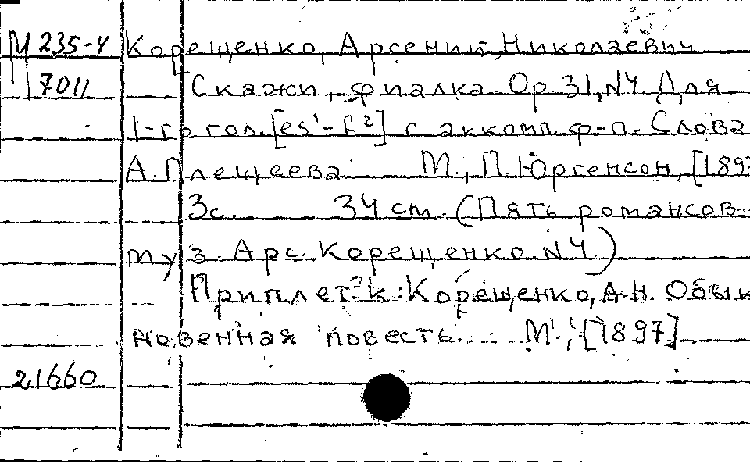 М 235-4 Корещенко, Арсений Николаевич
7011 Скажи, фиалка. Op 31, N4 Для
1-го гол. [es¹-f²] с аккомп. ф-п. Слова
А. Плещеева М., П. Юргенсон, [1897
3с. 34 cm. (Пять романсов
муз. Арс. Корещенко. N4)
Приплет. к: Корещенко, А.Н. Обык
новенная повесть. М., [1897]
21660